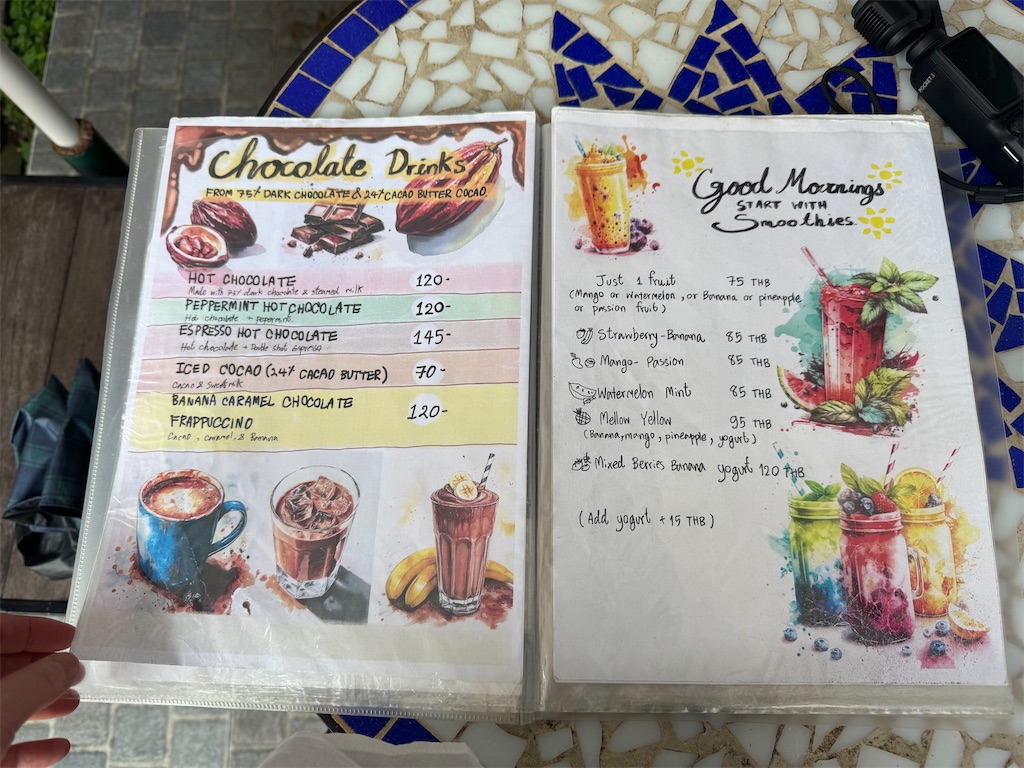 Chocolate Drinks
FROM 75% DARK CHOCOLATE & 24% CACAO BUTTER COCAO
HOT CHOCOLATE 120-
Made with 75% dark chocolate & steamed milk
PEPPERMINT HOT CHOCOLATE 120-
Hot chocolate + Peppermint
ESPRESSO HOT CHOCOLATE 145-
Hot chocolate + Double shot Espresso
ICED COCAO (24% CACAO BUTTER) 70-
Cacao & Sweet milk
BANANA CARAMEL CHOCOLATE
FRAPPUCCINO 120-
Cacao, Caramel, & Banana
Good Mornings
START WITH
Smoothies
Just 1 fruit 75 THB
(Mango or Watermelon, or Banana or pineapple
or passion fruit)
Strawberry-Banana 85 THB
Mango-Passion 85 THB
Watermelon Mint 85 THB
Mellow Yellow 95 THB
(Banana, mango, pineapple, yogurt)
Mixed Berries Banana yogurt 120 THB
(Add yogurt +15 THB)
POCKET 3